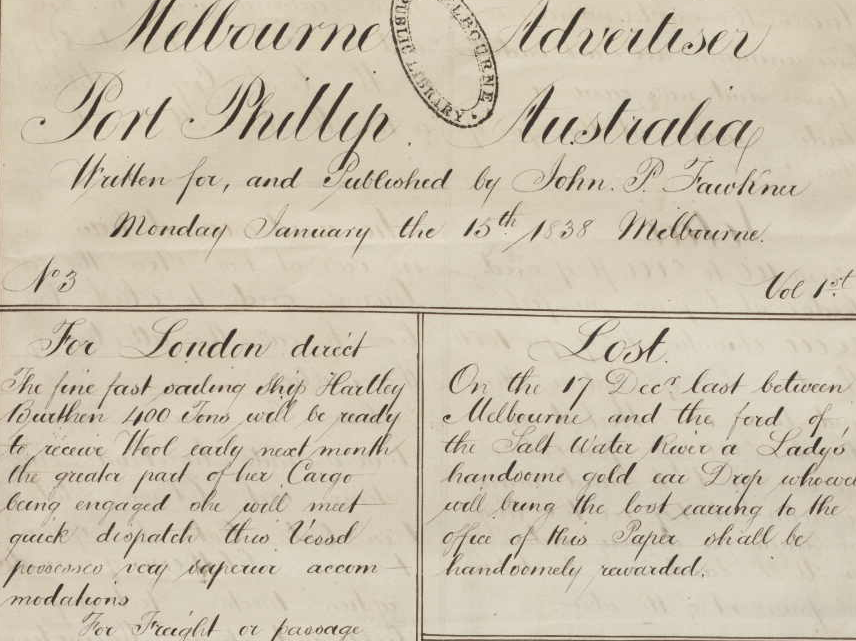 Melbourne Advertiser
Port Phillip. Australia
Written for, and Published by John. P. Fawkner
Monday January the 15th 1838 Melbourne.
No 3
Vol 1st
MELBOURNE
PUBLIC LIBRARY
For London direct
The fine fast sailing ship Hartley
Burthen 400 Tons will be ready
to receive Wool early next month
the greater part of her Cargo
being engaged she will meet
quick dispatch this Vessel
possesses very superior accom-
modations
For Freight or passage
Lost.
On the 17 Decr last between
Melbourne and the ford of
the Salt Water River a Lady's
handsome gold ear Drop whoever
will bring the lost earring to the
office of this Paper shall be
handsomely rewarded.